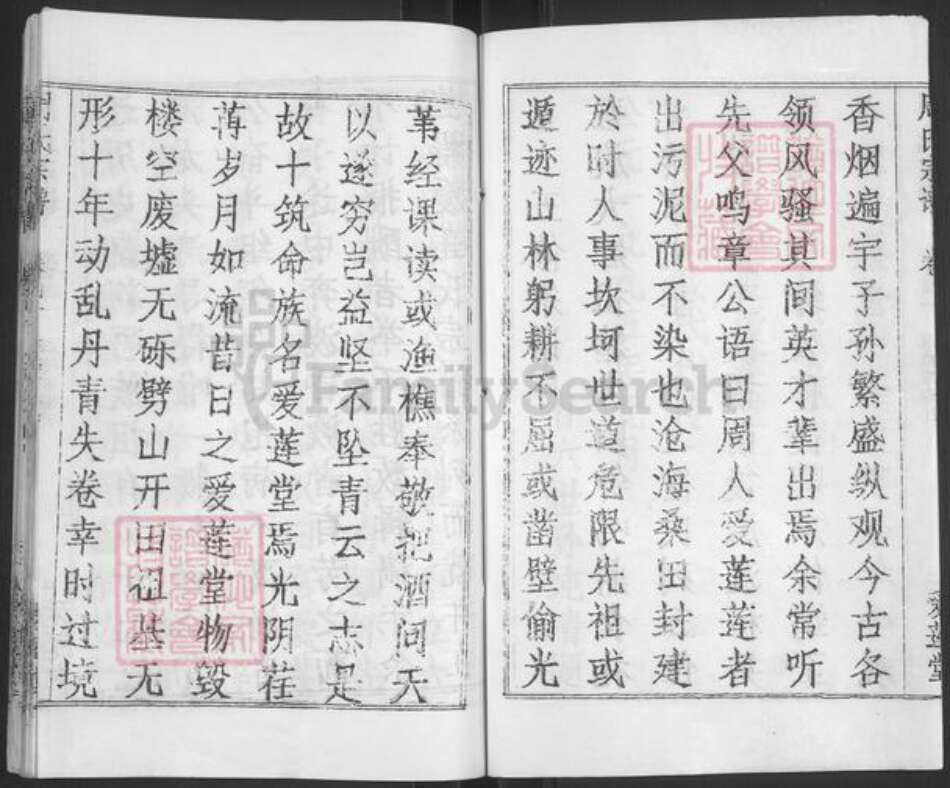 周氏宗谱 卷
爱莲堂
香烟遍宇子孙繁盛纵观今古各
领风骚其间英才辈出焉余常听
先父鸣章公语曰周人爱莲莲者
出污泥而不染也沧海桑田封建
於时人事坎坷世道危限先祖或
遁迹山林躬耕不屈或凿壁偷光
苇经课读或渔樵奉敬把酒问天
以遂穷岂益坚不坠青云之志是
故十筑命族名爱莲堂焉光阴荏
苒岁月如流昔日之爱莲堂物毁
楼空废墟无砾劈山开田祖基无
形十年动乱丹青失卷幸时过境
周氏宗谱
FamilySearch